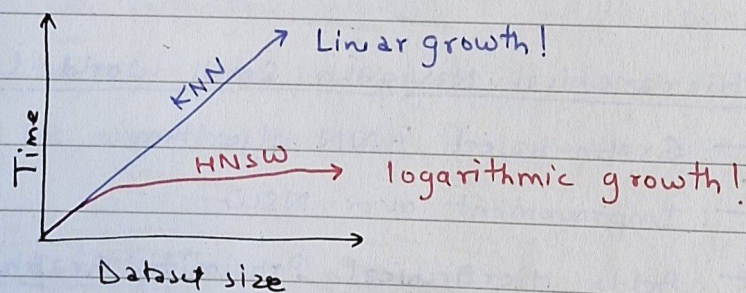 KNN
Linear growth!
Time
HNSW
logarithmic growth!
Dataset size